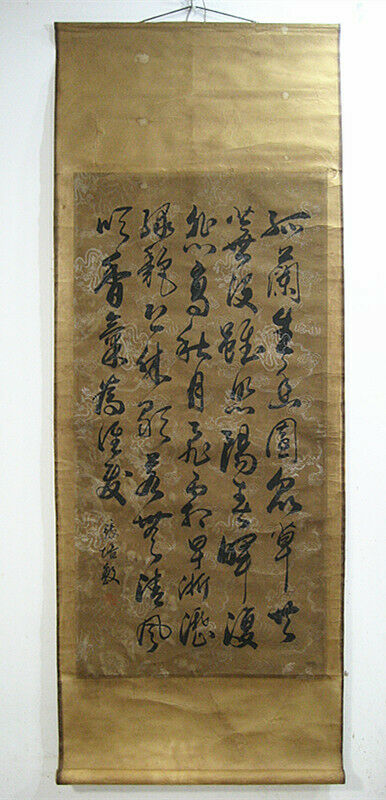 孤蘭生幽園眾草共
蕪没雖照陽春暉復
悲高秋月飛霜早淅瀝
綠艷恐休歇若無清風
吹香氣為誰發
張培敦